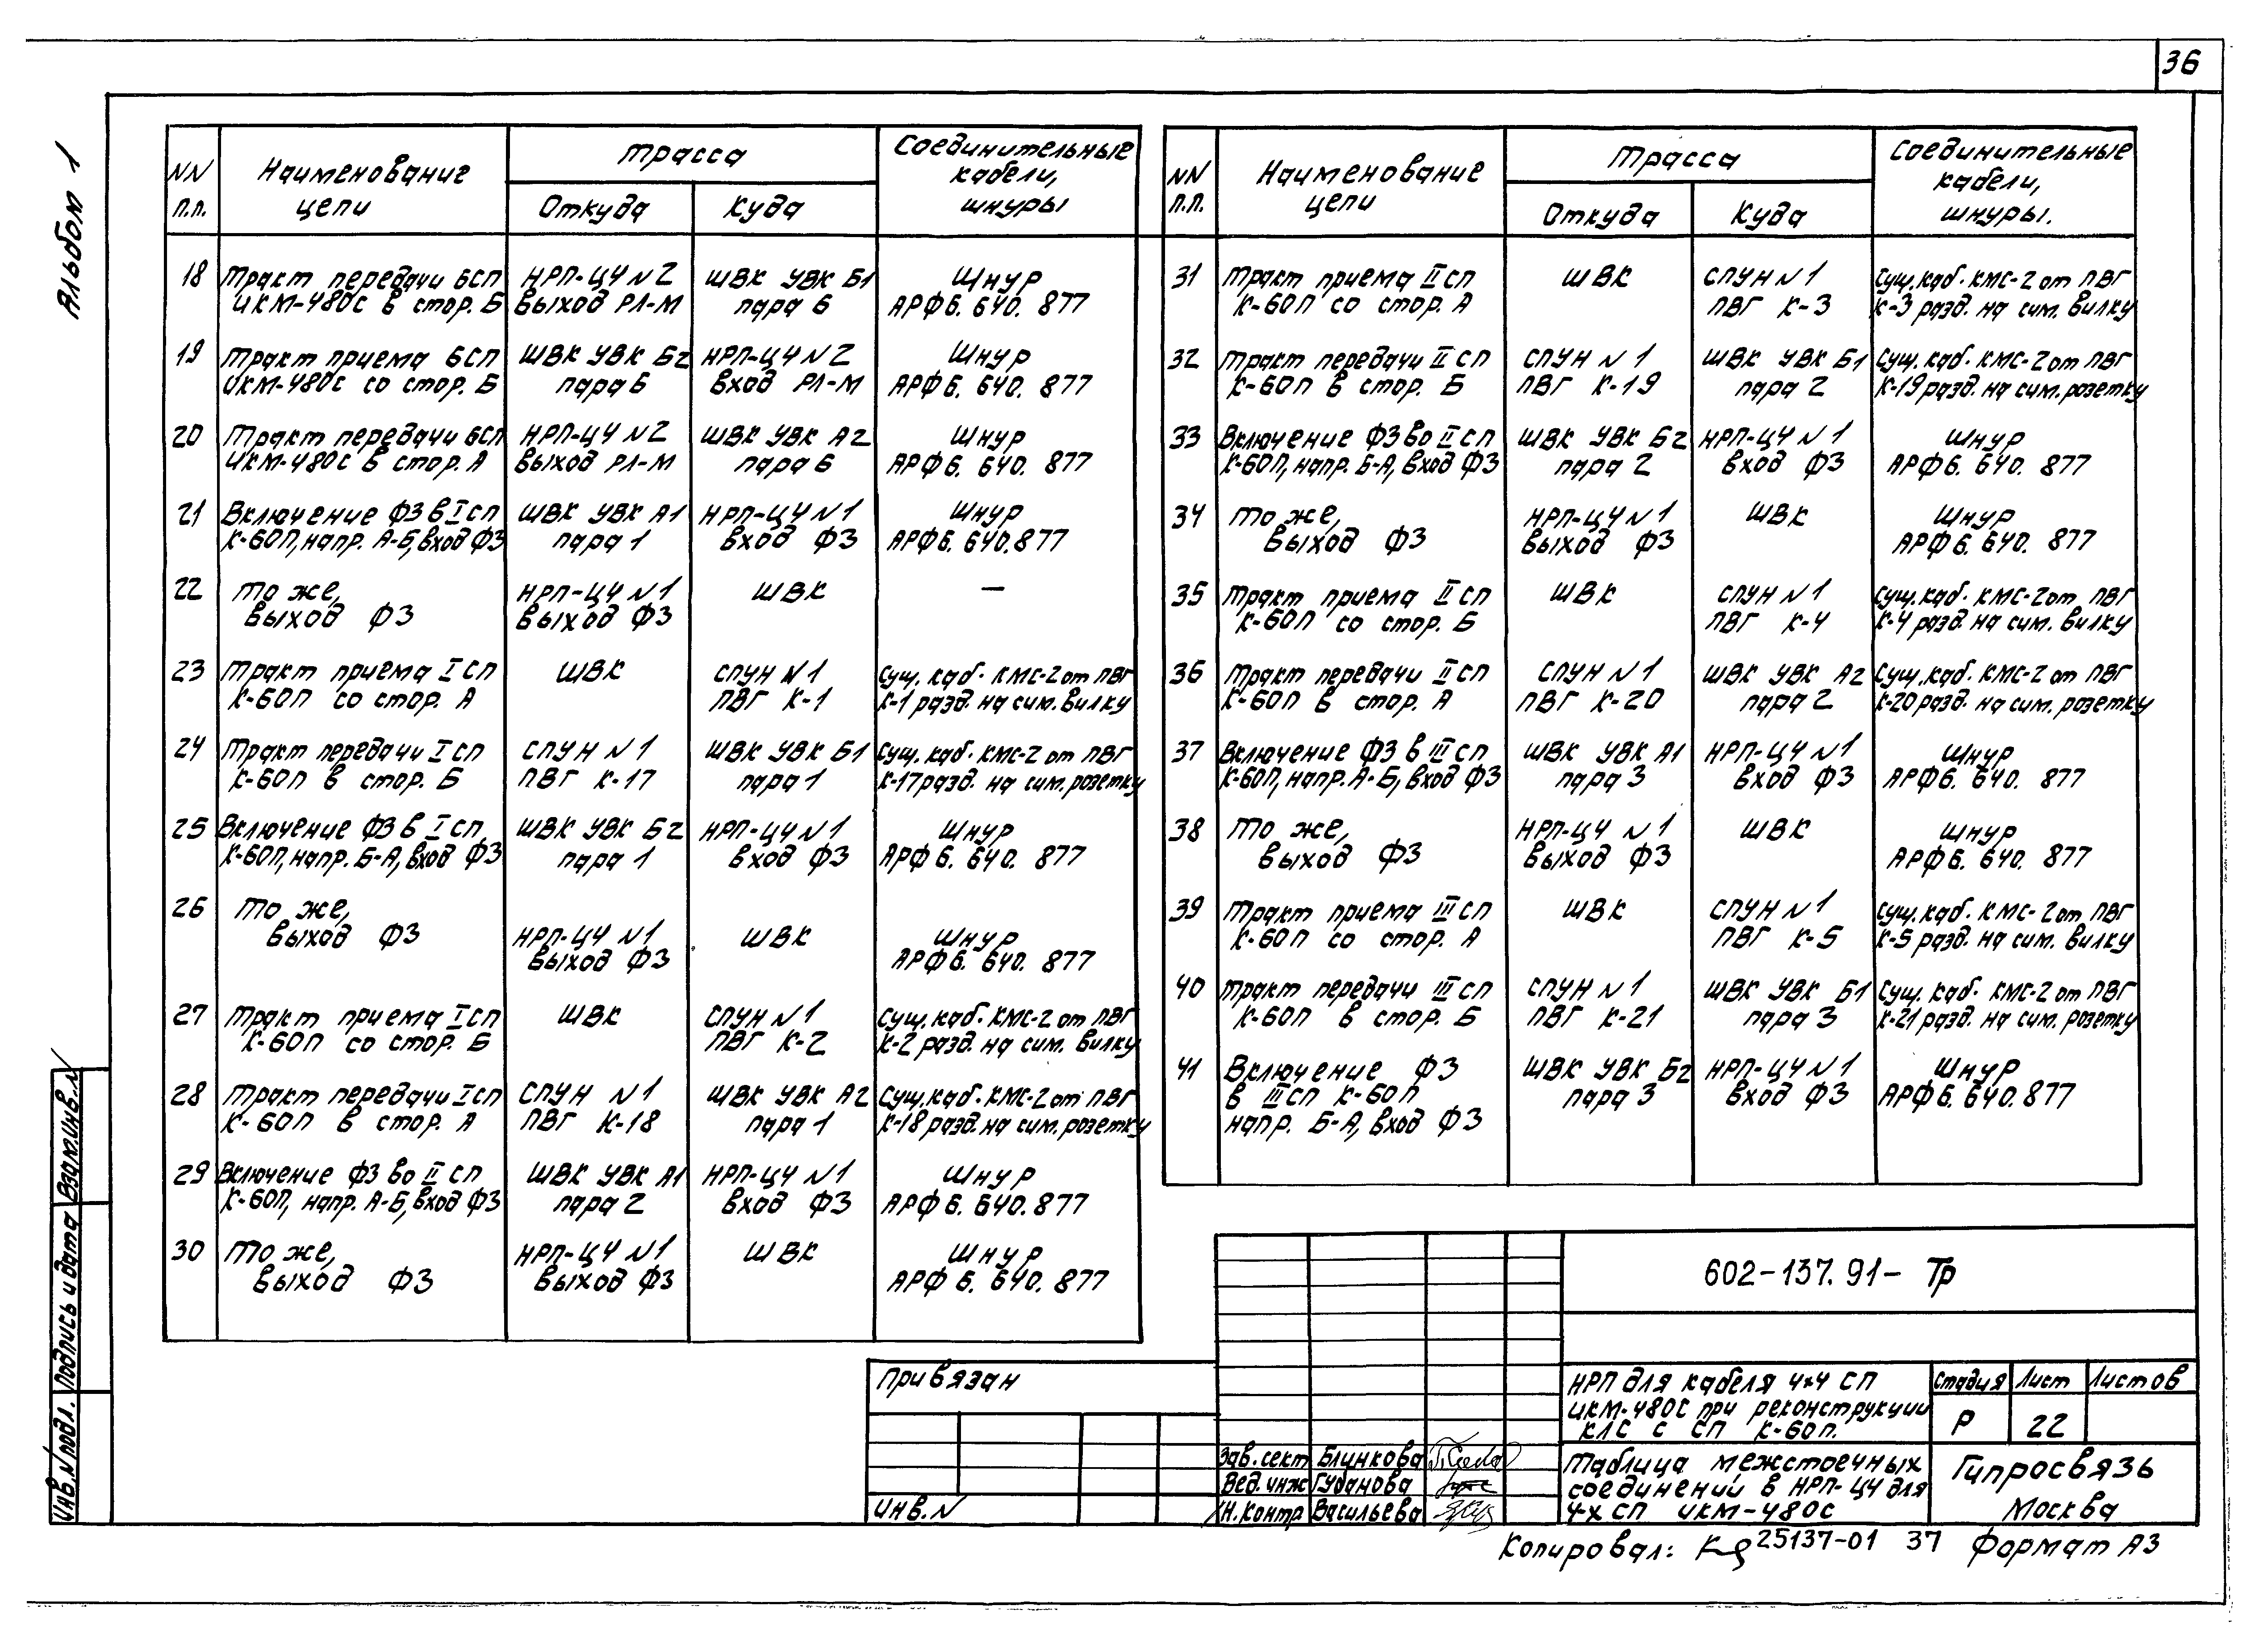 36
Альбом 1
NN п.п. Наименование цепи Трасса Соединительные кабели, шнуры
Откуда Куда
18 Тракт передачи 6СП НРП-Ц4 N2 ШВК УВК Б1 Шнур
ИКМ-480С в стор. Б выход РЛ-М пара 6 АРФ6. 640. 877
19 Тракт приема 6СП ШВК УВК Б2 НРП-Ц4 N2 Шнур
ИКМ-480С со стор. Б пара 6 вход РЛ-М АРФ6. 640. 877
20 Тракт передачи 6СП НРП-Ц4 N2 ШВК УВК А2 Шнур
ИКМ-480С в стор. А выход РЛ-М пара 6 АРФ6. 640. 877
21 Включение ФЗ в I СП ШВК УВК А1 НРП-Ц4 N1 Шнур
К-60П, напр. А-Б, вход ФЗ пара 1 вход ФЗ АРФ6. 640.877
22 То же, НРП-Ц4 N1 ШВК —
выход ФЗ выход ФЗ
23 Тракт приема I СП ШВК СПУН N1 Сущ. каб. КМС-2 от ПВГ
К-60П со стор. А ПВГ К-1 К-1 разд. на сим. вилку
24 Тракт передачи I СП СПУН N1 ШВК УВК Б1 Сущ. каб. КМС-2 от ПВГ
К-60П в стор. Б ПВГ К-17 пара 1 К-17 разд. на сим. розетку
25 Включение ФЗ в I СП ШВК УВК Б2 НРП-Ц4 N1 Шнур
К-60П, напр. Б-А, вход ФЗ пара 1 вход ФЗ АРФ6. 640. 877
26 То же,
выход ФЗ НРП-Ц4 N1 ШВК Шнур
выход ФЗ АРФ6. 640. 877
27 Тракт приема I СП ШВК СПУН N1 Сущ. каб. КМС-2 от ПВГ
К-60П со стор. Б ПВГ К-2 К-2 разд. на сим. вилку
28 Тракт передачи I СП СПУН N1 ШВК УВК А2 Сущ. каб. КМС-2 от ПВГ
К-60П в стор. А ПВГ К-18 пара 1 К-18 разд. на сим. розетку
29 Включение ФЗ во II СП ШВК УВК А1 НРП-Ц4 N1 Шнур
К-60П, напр. А-Б, вход ФЗ пара 2 вход ФЗ АРФ6. 640. 877
30 То же, НРП-Ц4 N1 ШВК Шнур
выход ФЗ выход ФЗ АРФ6. 640. 877
NN п.п. Наименование цепи Трасса Соединительные кабели, шнуры.
Откуда Куда
31 Тракт приема II СП ШВК СПУН N1 Сущ. каб. КМС-2 от ПВГ
К-60П со стор. А ПВГ К-3 К-3 разд. на сим. вилку
32 Тракт передачи II СП СПУН N1 ШВК УВК Б1 Сущ. каб. КМС-2 от ПВГ
К-60П в стор. Б ПВГ К-19 пара 2 К-19 разд. на сим. розетку
33 Включение ФЗ во II СП ШВК УВК Б2 НРП-Ц4 N1 Шнур
К-60П, напр. Б-А, вход ФЗ пара 2 вход ФЗ АРФ6. 640. 877
34 То же, НРП-Ц4 N1 ШВК Шнур
выход ФЗ выход ФЗ АРФ6. 640. 877
35 Тракт приема II СП ШВК СПУН N1 Сущ. каб. КМС-2 от ПВГ
К-60П со стор. Б ПВГ К-4 К-4 разд. на сим. вилку
36 Тракт передачи II СП СПУН N1 ШВК УВК А2 Сущ. каб. КМС-2 от ПВГ
К-60П в стор. А ПВГ К-20 пара 2 К-20 разд. на сим. розетку
37 Включение ФЗ в III СП ШВК УВК А1 НРП-Ц4 N1 Шнур
К-60П, напр. А-Б, вход ФЗ пара 3 вход ФЗ АРФ6. 640. 877
38 То же, НРП-Ц4 N1 ШВК Шнур
выход ФЗ выход ФЗ АРФ6. 640. 877
39 Тракт приема III СП ШВК СПУН N1 Сущ. каб. КМС-2 от ПВГ
К-60П со стор. А ПВГ К-5 К-5 разд. на сим. вилку
40 Тракт передачи III СП СПУН N1 ШВК УВК Б1 Сущ. каб. КМС-2 от ПВГ
К-60П в стор. Б ПВГ К-21 пара 3 К-21 разд. на сим. розетку
41 Включение ФЗ ШВК УВК Б2 НРП-Ц4 N1 Шнур
в III СП К-60П пара 3 вход ФЗ АРФ6. 640.877
напр. Б-А, вход ФЗ
602-137.91- Тр
Привязан
Инв. N
НРП для кабеля 4×4 СП
ИКМ-480С при реконструкции
КЛС с СП К-60П.
Стадия Лист Листов
Р 22
Зав. сект Блинкова
Вед. инж Губанова
Н. контр Васильева
Таблица межстоечных
соединений в НРП-Ц4 для
4-х СП ИКМ-480С
Гипросвязь
Москва
Инв. N подл. Подпись и дата Взам. инв. N
Копировал: 25137-01 37 Формат А3